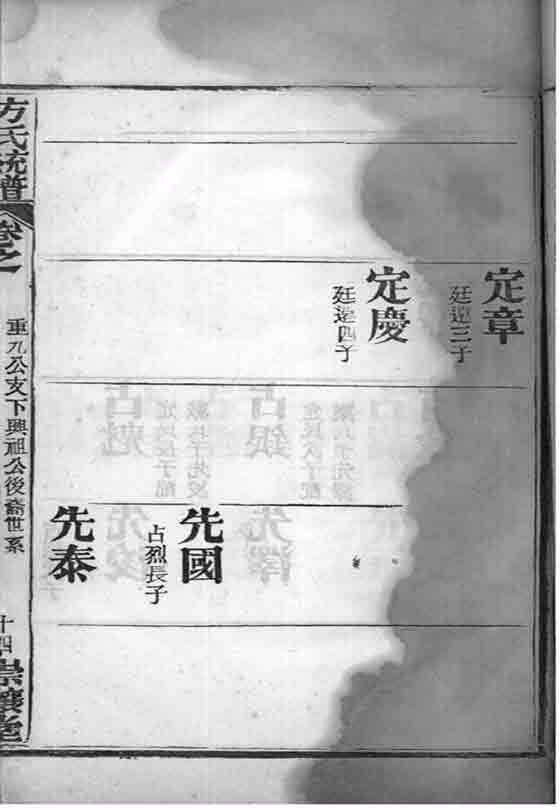 定章
廷選三子
定慶
廷選四子
先國
占烈長子
先泰
方氏統譜
卷之
重九公支下興祖公後裔世系
十四